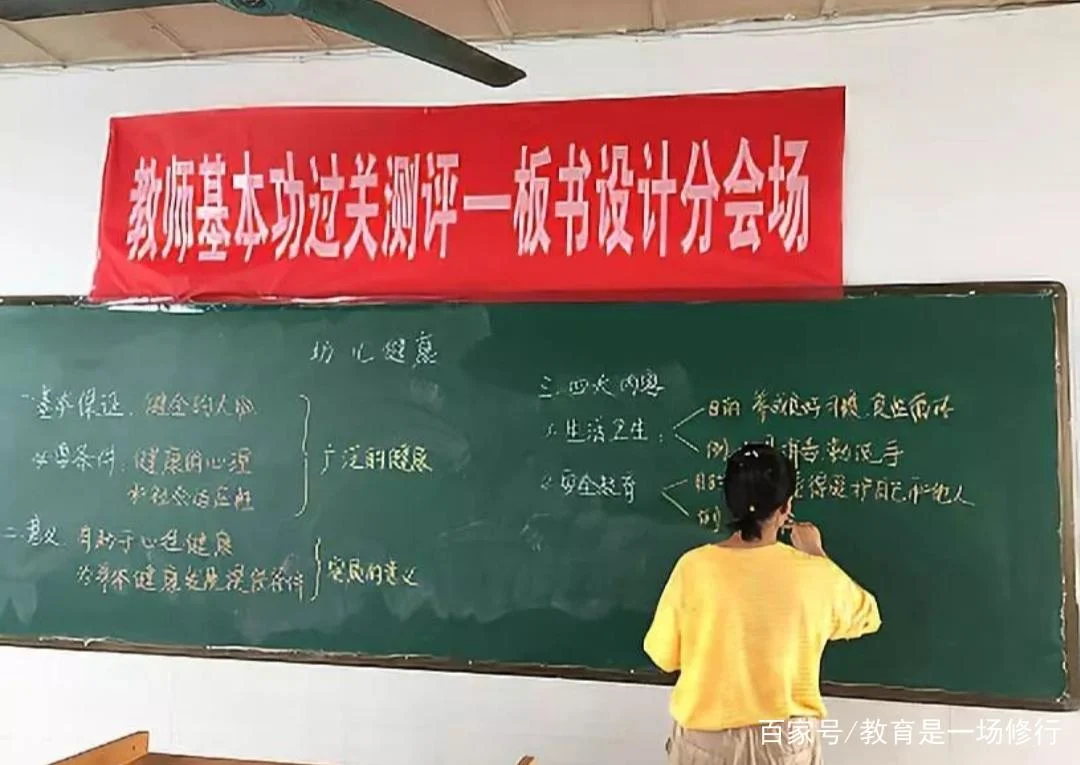 教师基本功过关测评—板书设计分会场
幼儿健康
一基本保证：健全的人格
必要条件：健康的心理
和社会适应性
广泛的健康
二意义 有助于心理健康
为幼儿健康发展提供条件
实质的意义
三.四大内容
1.生活卫生：
目的 养成良好习惯
例 勤洗手
2.安全教育
目的 保护自己和他人
例
百家号/教育是一场修行